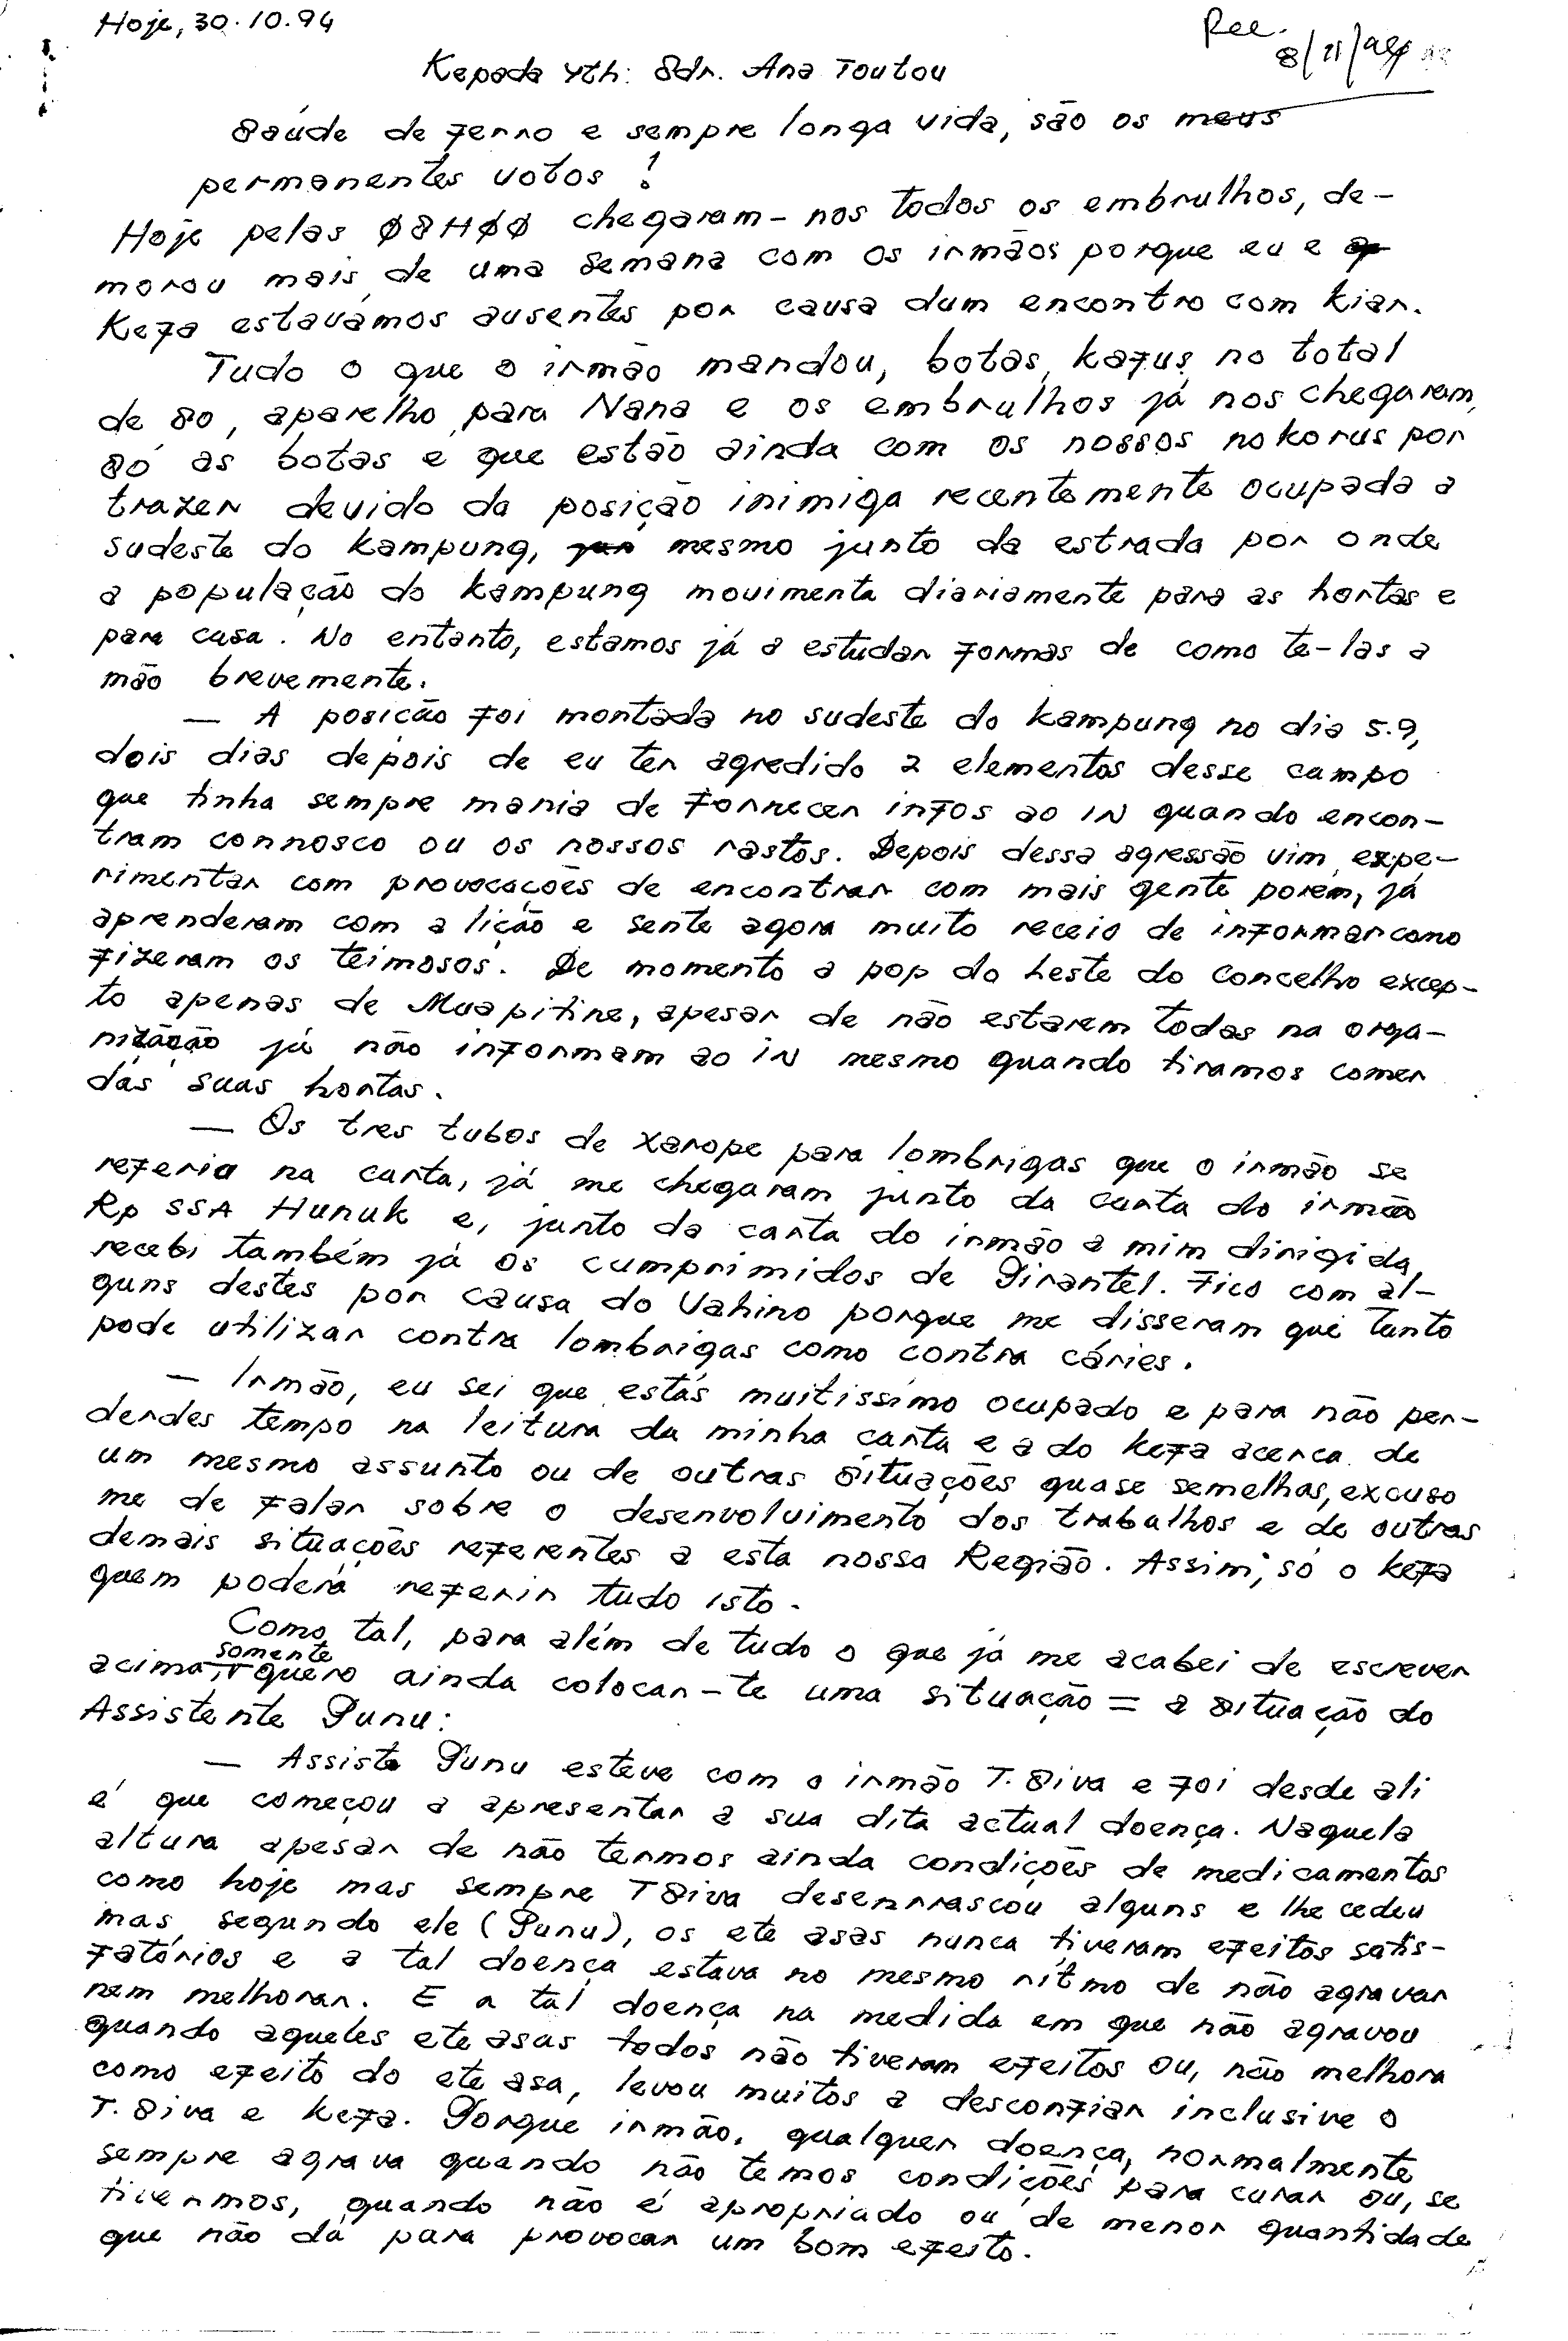 Hoje, 30.10.94
Rec.
8/11/
Kepada Yth: Sdr. Ana Toutou
Saúde de ferro e sempre longa vida, são os meus
permanentes votos !
Hoje pelas Ø8HØØ chegaram-nos todos os embrulhos, de-
morou mais de uma semana com os irmãos porque eu e
Kefa estavámos ausentes por causa dum encontro com Kiar.
Tudo o que o irmão mandou, botas, kafus no total
de 80, aparelho para Nana e os embrulhos já nos chegaram,
só as botas é que estão ainda com os nossos nokorus por
trazer devido da posição inimiga recentemente ocupada a
sudeste do kampung, mesmo junto da estrada por onde
a população do kampung movimenta diariamente para as hortas e
para casa. No entanto, estamos já a estudar formas de como te-las a
mão brevemente.
— A posicão foi montada no sudeste do kampung no dia 5.9,
dois dias depois de eu ter agredido 2 elementos desse campo
que tinha sempre mania de fornecer infos ao IN quando encon-
tram connosco ou os nossos rastos. Depois dessa agressão vim expe-
rimentar com provocações de encontrar com mais gente porém, já
aprenderam com a lição e sente agora muito receio de informar como
fizeram os teimosos. De momento a pop do Leste do Concelho excep-
to apenas de Muapitine, apesar de não estarem todas na orga-
nização já não informam ao IN mesmo quando tiramos comer
das suas hortas.
— Os tres tubos de xarope para lombrigas que o irmão se
referia na carta, já me chegaram junto da carta do irmão
Rp SSA Hunuk e, junto da carta do irmão a mim dirigida,
recebi também já os cumprimidos de Pirantel. Fico com al-
guns destes por causa do Vahino porque me disseram que tanto
pode utilizar contra lombrigas como contra cáries.
— Irmão, eu sei que estás muitissímo ocupado e para não per-
derdes tempo na leitura da minha carta e a do Kefa acerca de
um mesmo assunto ou de outras situações quase semelhas, excuso
me de falar sobre o desenvolvimento dos trabalhos e de outras
demais situações referentes a esta nossa Região. Assim, só o Kefa
quem poderá referir tudo isto.
Como tal, para além de tudo o que já me acabei de escrever
acima, somente quero ainda colocar-te uma situação = a situação do
Assistente Punu:
— Assiste Punu esteve com o irmão T. Siva e foi desde ali
é que começou a apresentar a sua dita actual doença. Naquela
altura apesar de não termos ainda condições de medicamentos
como hoje mas sempre T Siva desenrrascou alguns e lhe cedeu
mas, segundo ele (Punu), os ete asas nunca tiveram efeitos satis-
fatórios e a tal doença estava no mesmo rítmo de não agravar
nem melhorar. E a tal doença na medida em que não agravou
quando aqueles ete asas todos não tiveram efeitos ou, não melhora
como efeito do ete asa, levou muitos a desconfiar inclusive o
T. Siva e Kefa. Porque irmão, qualquer doença, normalmente
sempre agrava quando não temos condições para curar ou, se
tivermos, quando não é apropriado ou de menor quantidade
que não dá para provocar um bom efeito.